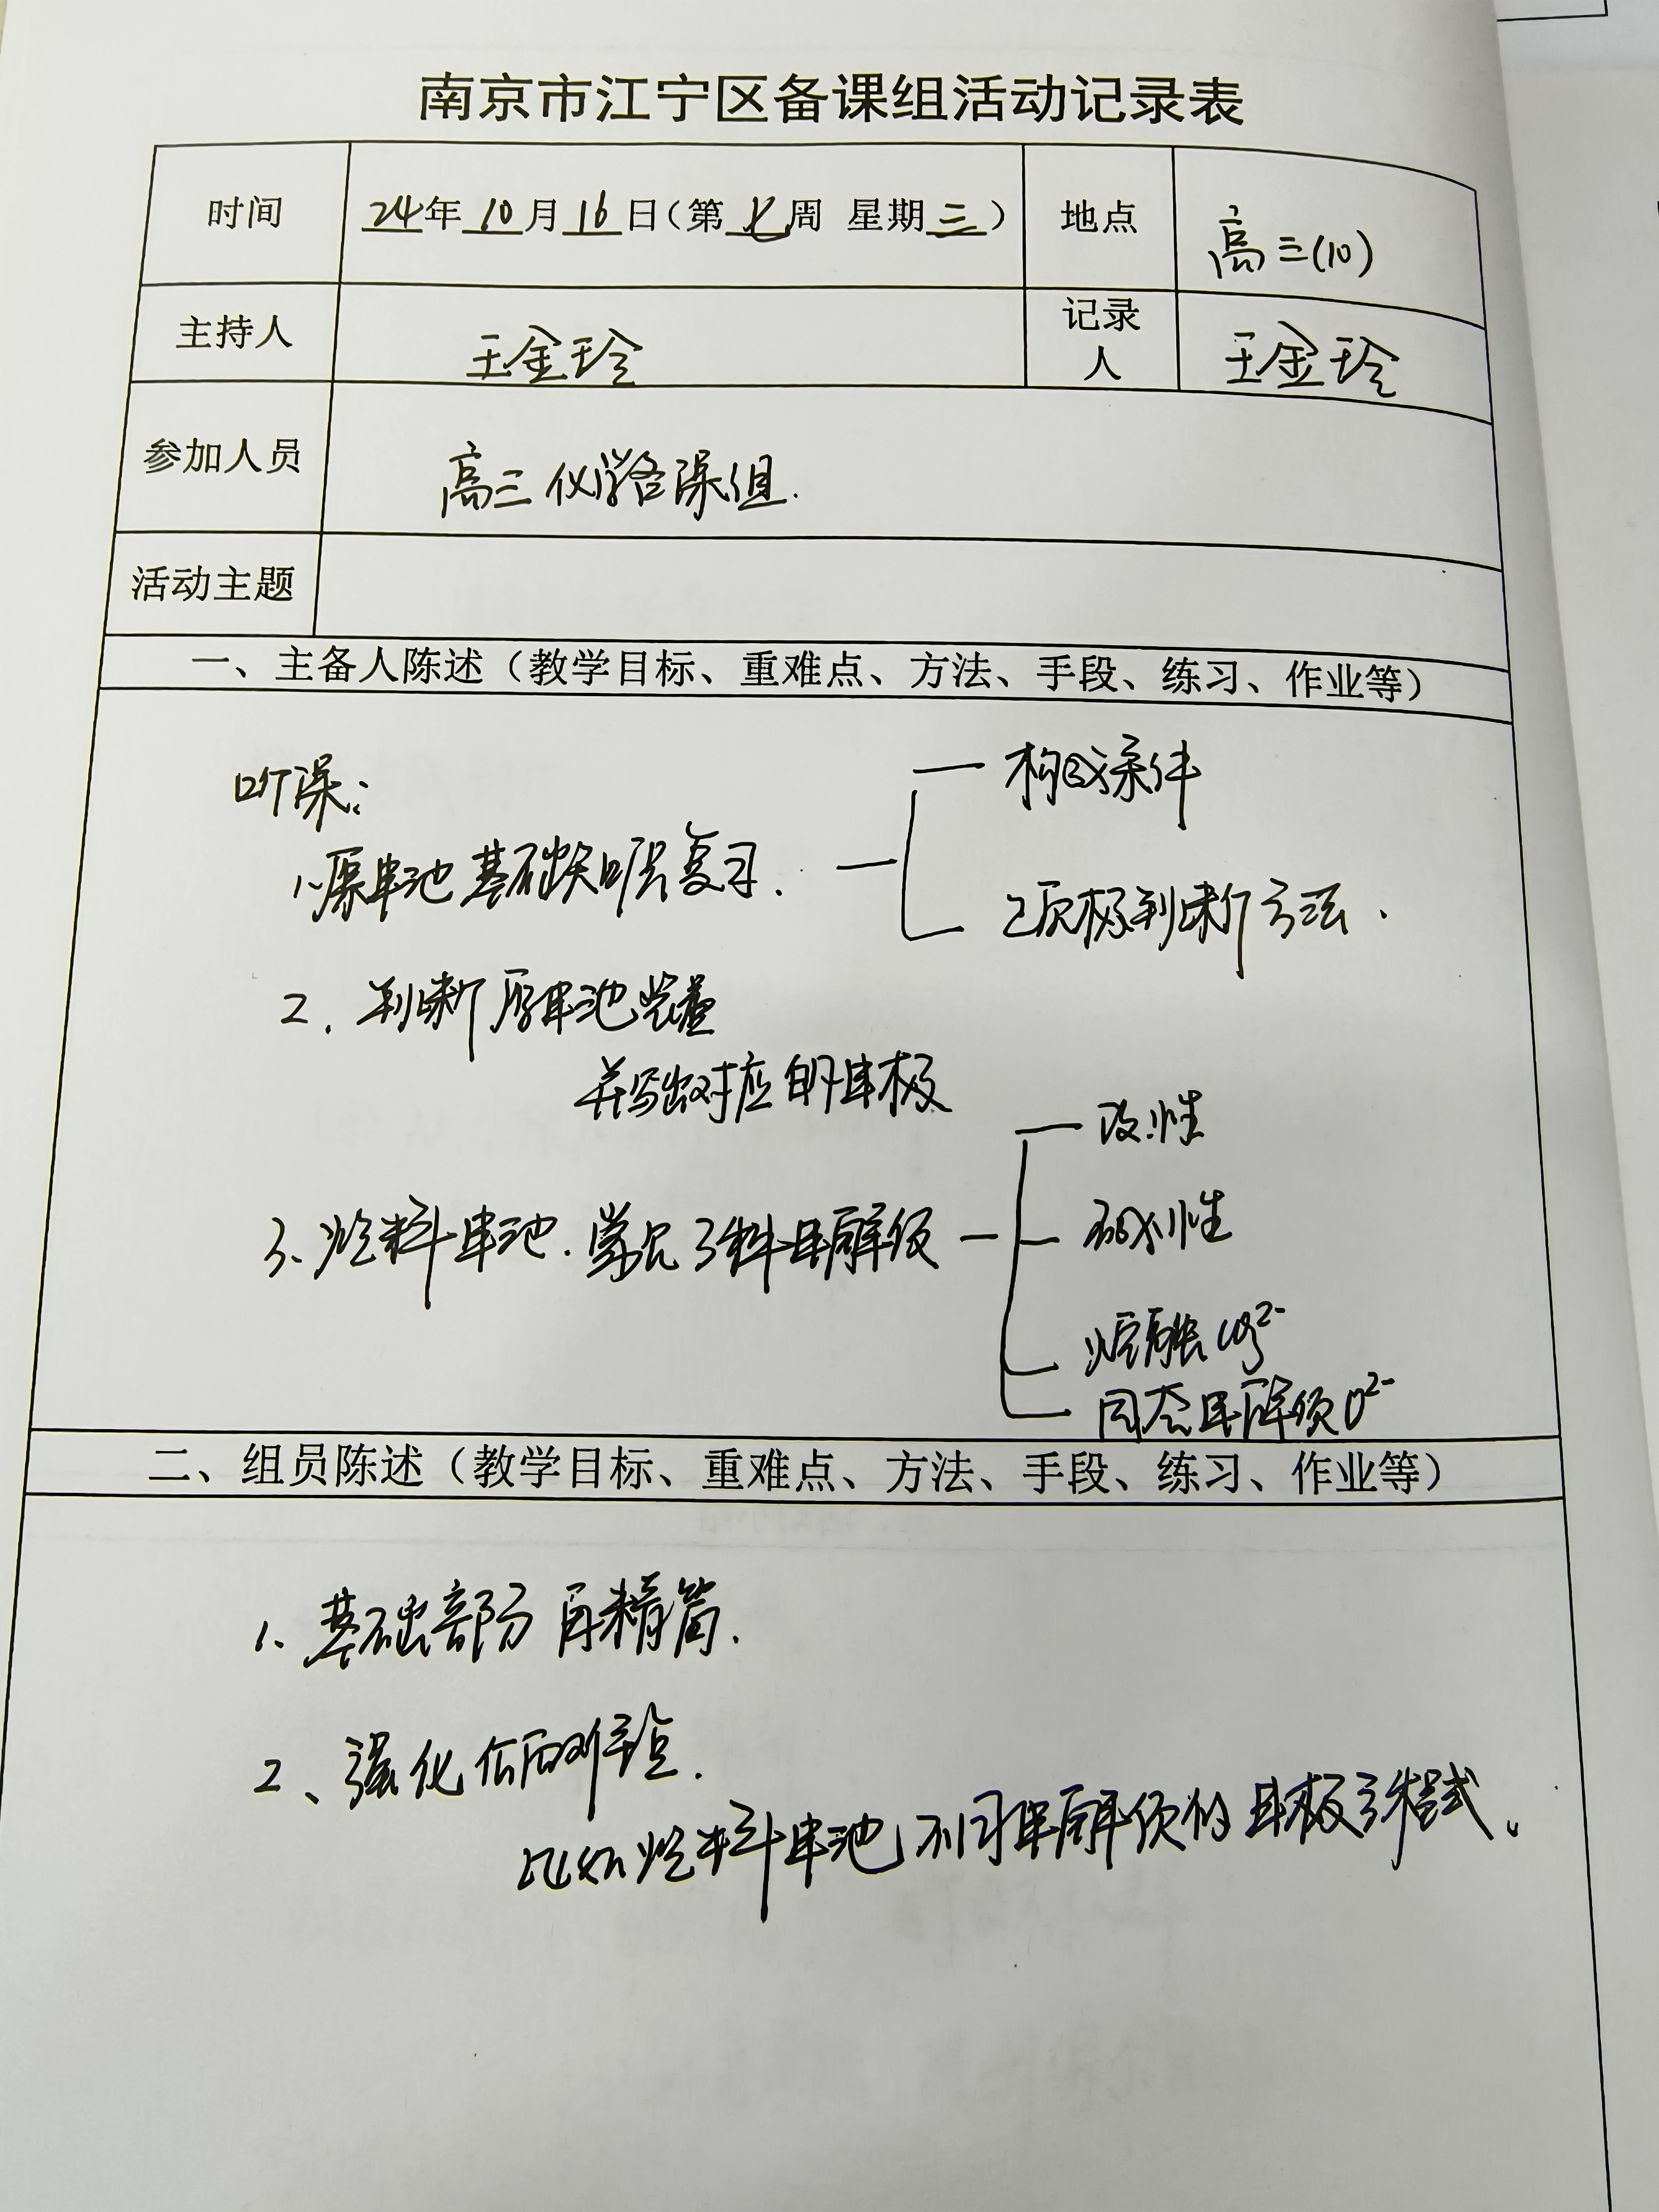 南京市江宁区备课组活动记录表
时间 24年10月16日(第七周 星期三) 地点 高三(10)
主持人 王金玲 记录人 王金玲
参加人员 高三化学备课组.
活动主题
一、主备人陈述(教学目标、重难点、方法、手段、练习、作业等)
听课:
1、原电池基础知识复习.
构成条件
正负极判断方法.
2. 判断原电池装置
并写出对应的电极
3、燃料电池.常见
酸性
碱性
熔融CO₃²⁻
固态电解质O²⁻
二、组员陈述(教学目标、重难点、方法、手段、练习、作业等)
1、基础部分再精简.
2、强化后面难点.
比如燃料电池不同电解质的电极方程式。